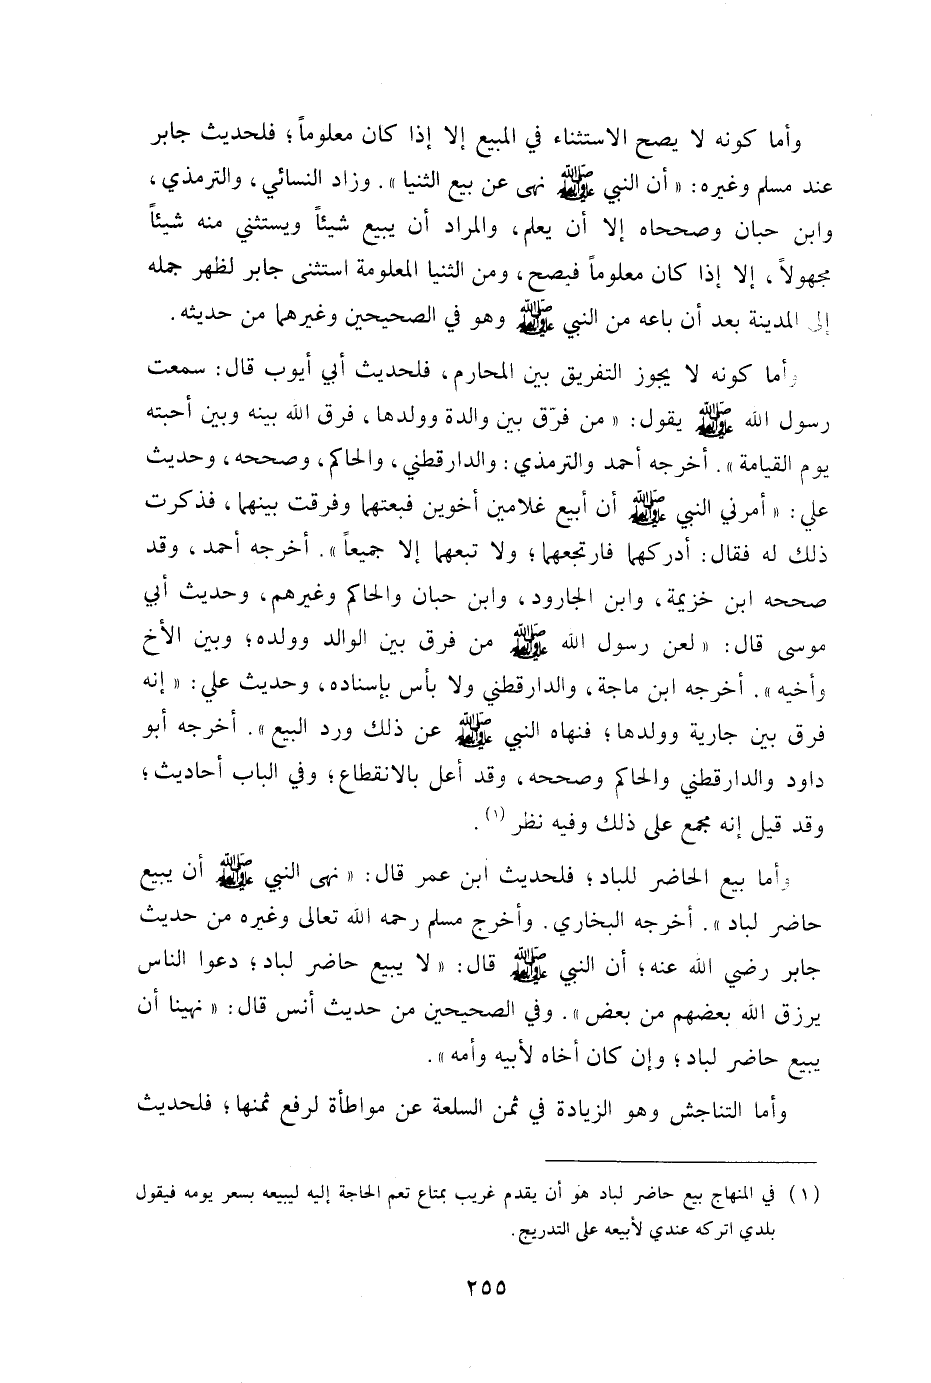 وأما كونه لا يصح الاستثناء في المبيع إلا إذا كان معلوماً؛ فلحديث جابر
عند مسلم وغيره: «أن النبي ﷺ نهى عن بيع الثنيا». وزاد النسائي، والترمذي،
وابن حبان وصححاه إلا أن يعلم، والمراد أن يبيع شيئاً ويستثني منه شيئاً
مجهولاً، إلا إذا كان معلوماً فيصح، ومن الثنيا المعلومة استثنى جابر لظهر جمله
إلى المدينة بعد أن باعه من النبي ﷺ وهو في الصحيحين وغيرهما من حديثه.
وأما كونه لا يجوز التفريق بين المحارم، فلحديث أبي أيوب قال: سمعت
رسول الله ﷺ يقول: «من فرّق بين والدة وولدها، فرق الله بينه وبين أحبته
يوم القيامة». أخرجه أحمد والترمذي: والدارقطني، والحاكم، وصححه، وحديث
علي: «أمرني النبي ﷺ أن أبيع غلامين أخوين فبعتهما وفرقت بينهما، فذكرت
ذلك له فقال: أدركهما فارتجعهما؛ ولا تبعهما إلا جميعاً». أخرجه أحمد، وقد
صححه ابن خزيمة، وابن الجارود، وابن حبان والحاكم وغيرهم، وحديث أبي
موسى قال: «لعن رسول الله ﷺ من فرق بين الوالد وولده؛ وبين الأخ
وأخيه». أخرجه ابن ماجة، والدارقطني ولا بأس بإسناده، وحديث علي: «إنه
فرق بين جارية وولدها؛ فنهاه النبي ﷺ عن ذلك ورد البيع». أخرجه أبو
داود والدارقطني والحاكم وصححه، وقد أعل بالانقطاع؛ وفي الباب أحاديث؛
وقد قيل إنه مجمع على ذلك وفيه نظر (١).
وأما بيع الحاضر للباد؛ فلحديث ابن عمر قال: «نهى النبي ﷺ أن يبيع
حاضر لباد». أخرجه البخاري. وأخرج مسلم رحمه الله تعالى وغيره من حديث
جابر رضي الله عنه؛ أن النبي ﷺ قال: «لا يبيع حاضر لباد؛ دعوا الناس
يرزق الله بعضهم من بعض». وفي الصحيحين من حديث أنس قال: «نهينا أن
يبيع حاضر لباد؛ وإن كان أخاه لأبيه وأمه».
وأما التناجش وهو الزيادة في ثمن السلعة عن مواطأة لرفع ثمنها؛ فلحديث
(١) في المنهاج بيع حاضر لباد هو أن يقدم غريب بمتاع تعم الحاجة إليه ليبيعه بسعر يومه فيقول
بلدي اتركه عندي لأبيعه على التدريج.
٢٥٥